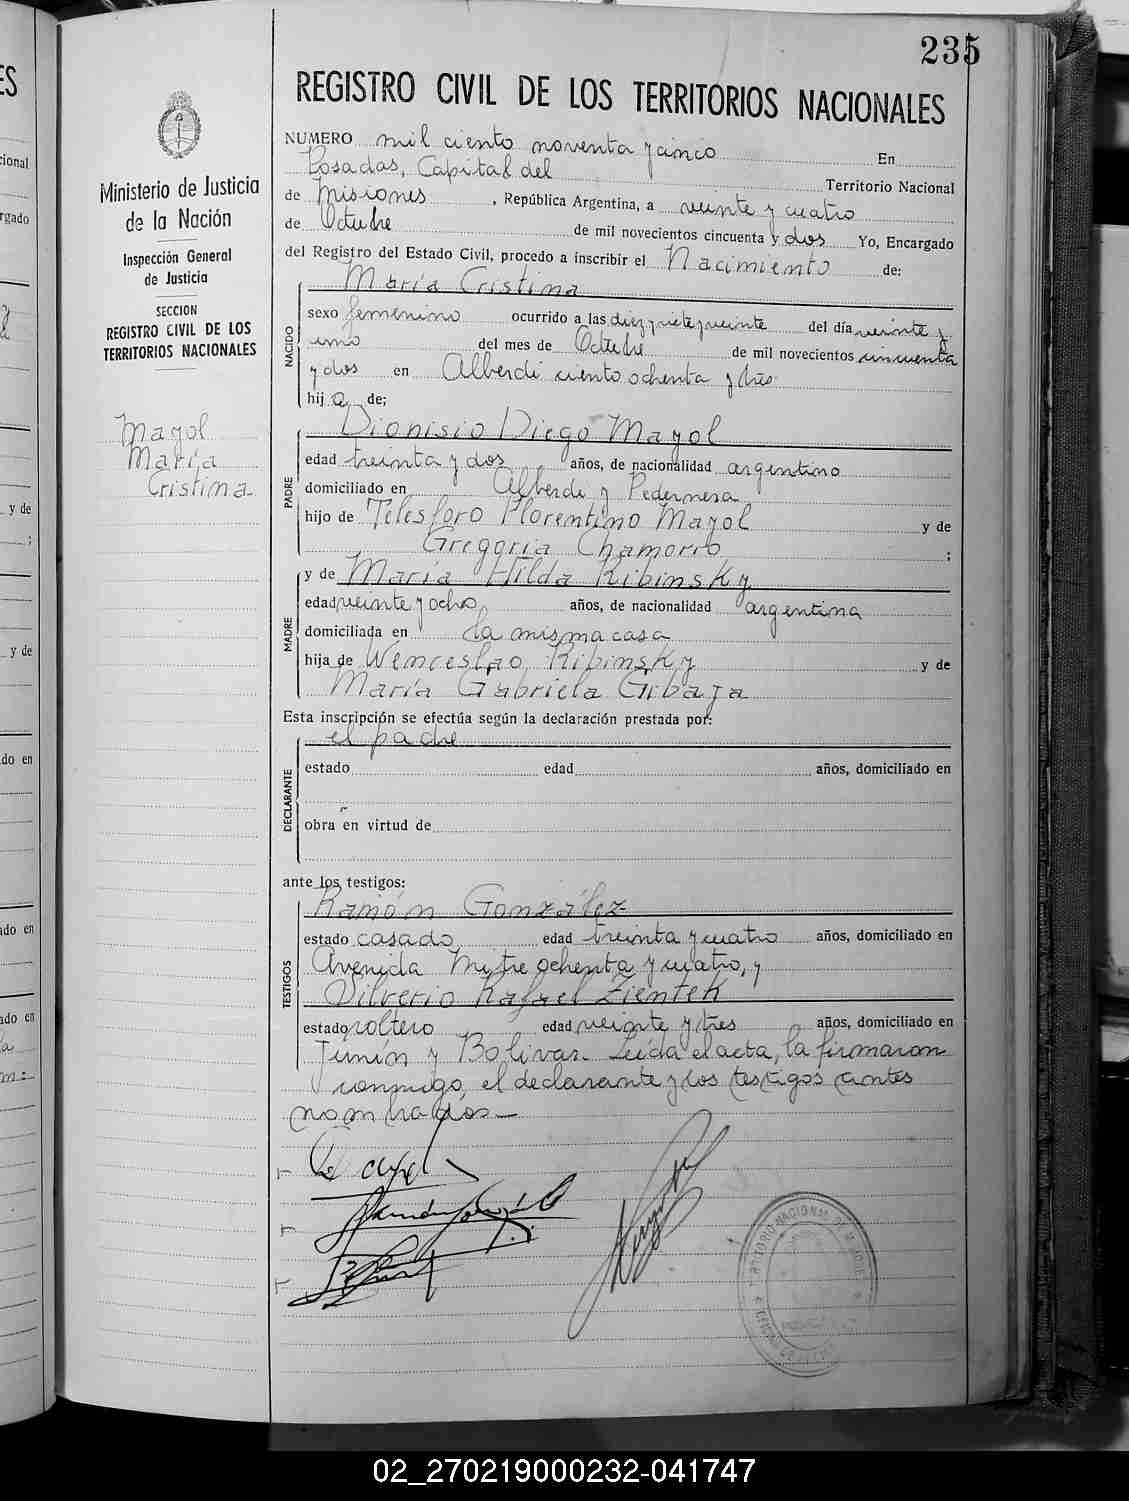 235
REGISTRO CIVIL DE LOS TERRITORIOS NACIONALES
Ministerio de Justicia
de la Nación
Inspección General
de Justicia
SECCION
REGISTRO CIVIL DE LOS
TERRITORIOS NACIONALES
Mayol
María
Cristina
NUMERO mil ciento noventa y cinco En
Posadas, Capital del Territorio Nacional
de Misiones, República Argentina, a veinte y cuatro
de Octubre de mil novecientos cincuenta y dos Yo, Encargado
del Registro del Estado Civil, procedo a inscribir el Nacimiento de:
María Cristina
NACIDO
sexo femenino ocurrido a las diez y siete y veinte del día veinte y
uno del mes de Octubre de mil novecientos cincuenta
y dos en Alberdi ciento ochenta y tres
hija de;
Dionisio Diego Mayol
PADRE
edad treinta y dos años, de nacionalidad argentino
domiciliado en Alberdi y Pedernera
hijo de Telesforo Florentino Mayol y de
Gregoria Chamorro ;
y de María Hilda Ribinsky
MADRE
edad veinte y ocho años, de nacionalidad argentina
domiciliada en la misma casa
hija de Wenceslao Ribinsky y de
María Gabriela Gibaja
Esta inscripción se efectúa según la declaración prestada por:
el padre
DECLARANTE
estado edad años, domiciliado en
obra en virtud de
ante los testigos:
Ramón González
TESTIGOS
estado casado edad treinta y cuatro años, domiciliado en
Avenida Mitre ochenta y cuatro, y
Silverio Rafael Zientek
estado soltero edad veinte y tres años, domiciliado en
Junín y Bolivar. Leída el acta, la firmaron
conmigo, el declarante y los testigos antes
nombrados.—
02_270219000232-041747